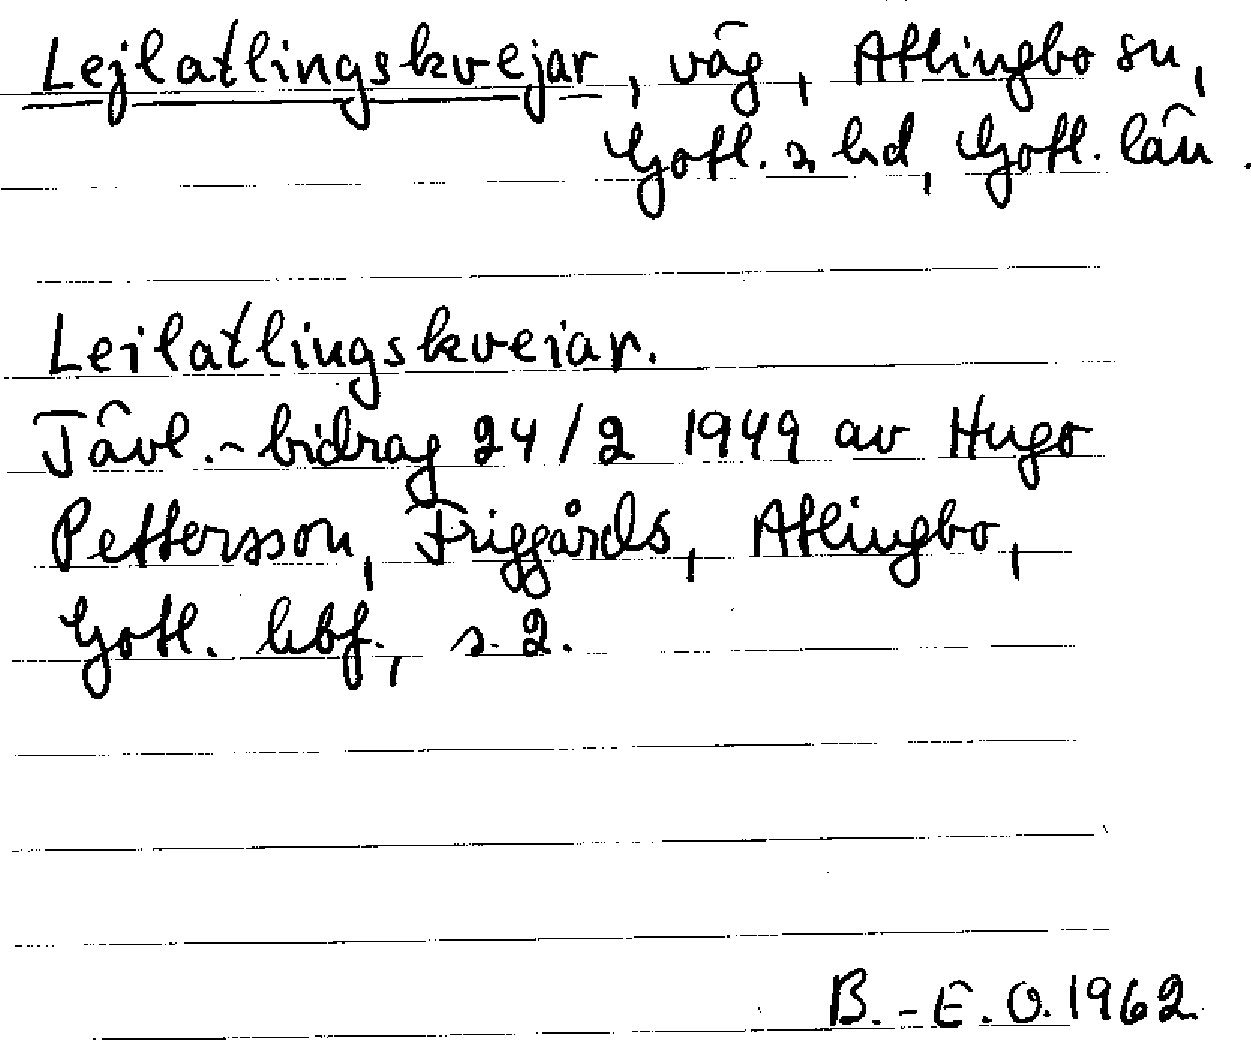 Lejlatlingskvejar, väg, Atlingbo sn,
Gotl. s. hd, Gotl. län.
Leilatlingskveiar.
Tävl.-bidrag 24/2 1949 av Hugo
Pettersson, Friggårds, Atlingbo,
Gotl. hbf., s. 2.
B.-E. O. 1962